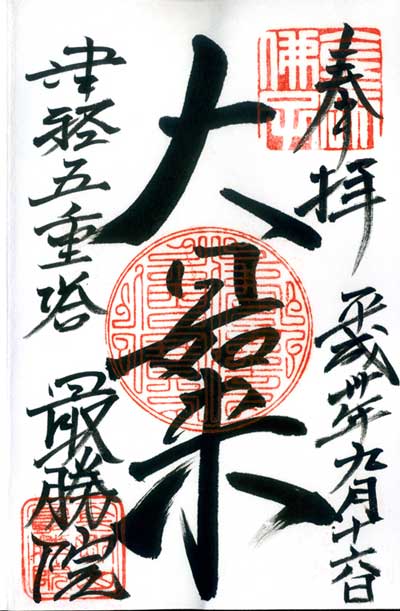 奉拝
平成卅年九月十六日
大日如来
津軽五重塔
最勝院